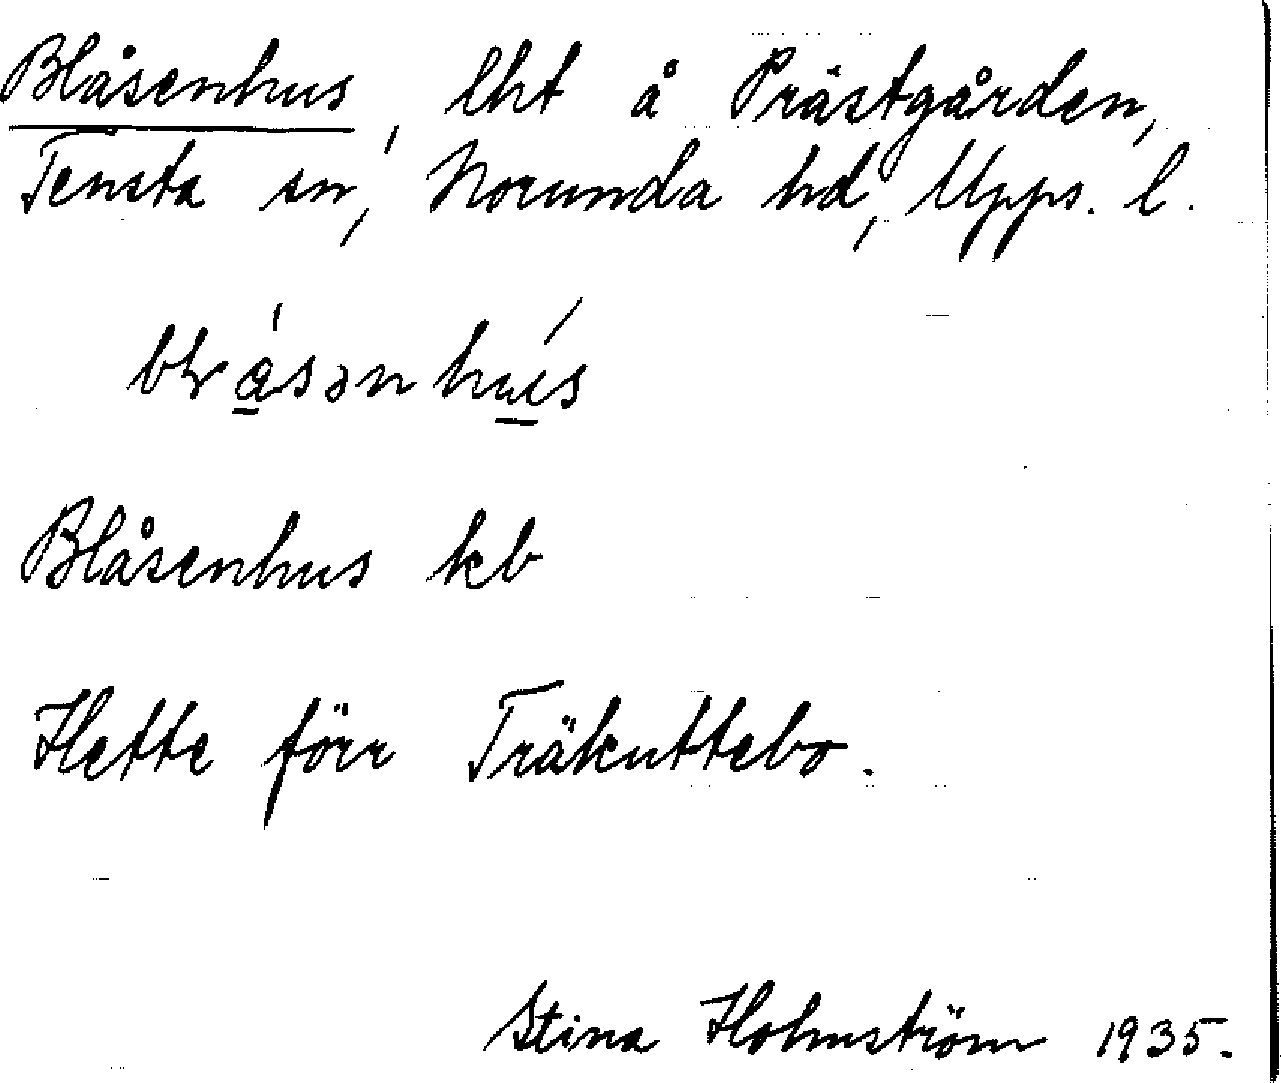 Blåsenhus, lht å Prästgården,
Tensta sn, Norunda hd, Upps. l.
Blåsenhus kb
Hette förr Träkuttebo.
Stina Holmström 1935.